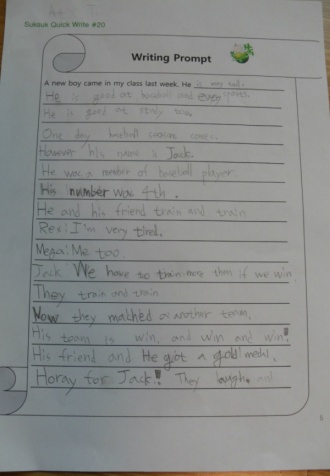 A+ T
Suksuk Quick Write #20
Writing Prompt
A new boy came in my class last week. He is very tall.
He is good at baseball and sports.
He is good at study too.
One day baseball season comes.
However his name is Jack.
He was a member of baseball player
His number was 4th.
He and his friend train and train
Rex: I'm very tired.
Mega: Me too.
Jack: We have to train more then if we win
They train and train
Now they matched a another team.
His team is win, and win and win!
His friend and He got a gold medal.
Horay for Jack! They laugh.